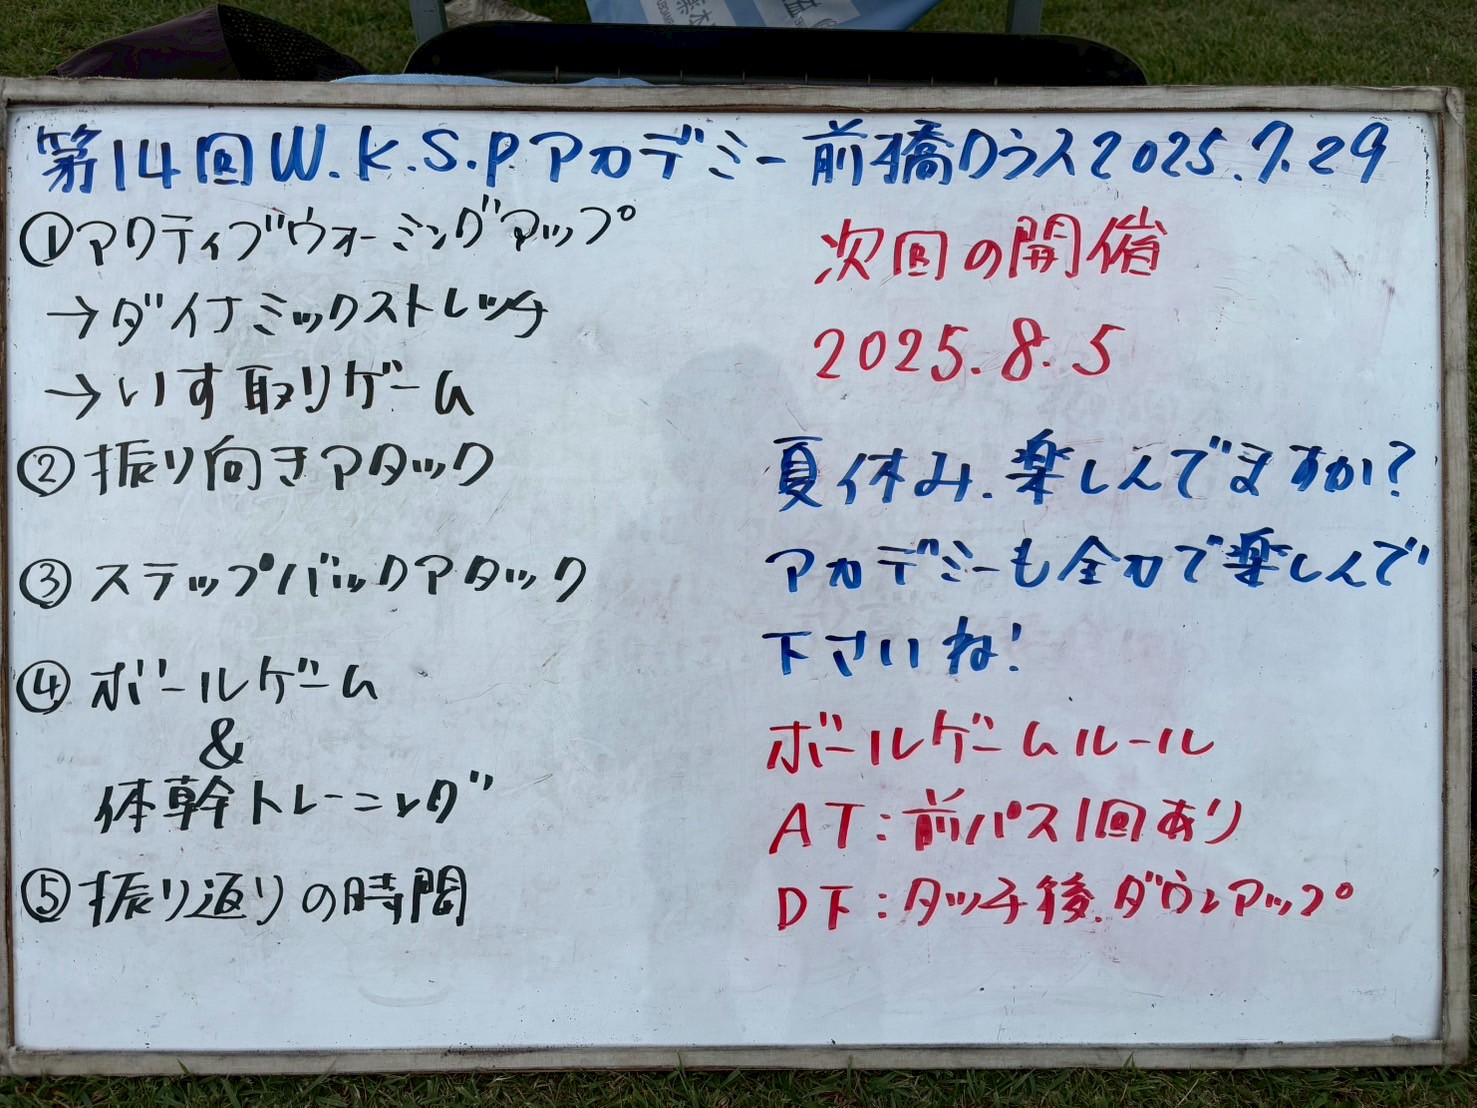 第14回W.K.S.Pアカデミー前橋クラス2025.7.29
①アクティブウォーミングアップ
→ダイナミックストレッチ
→いす取りゲーム
②振り向きアタック
③ステップバックアタック
④ボールゲーム
&
体幹トレーニング
⑤振り返りの時間
次回の開催
2025.8.5
夏休み、楽しんでますか?
アカデミーも全力で楽しんで
下さいね!
ボールゲームルール
AT:前パス1回あり
DF:タッチ後、ダウンアップ